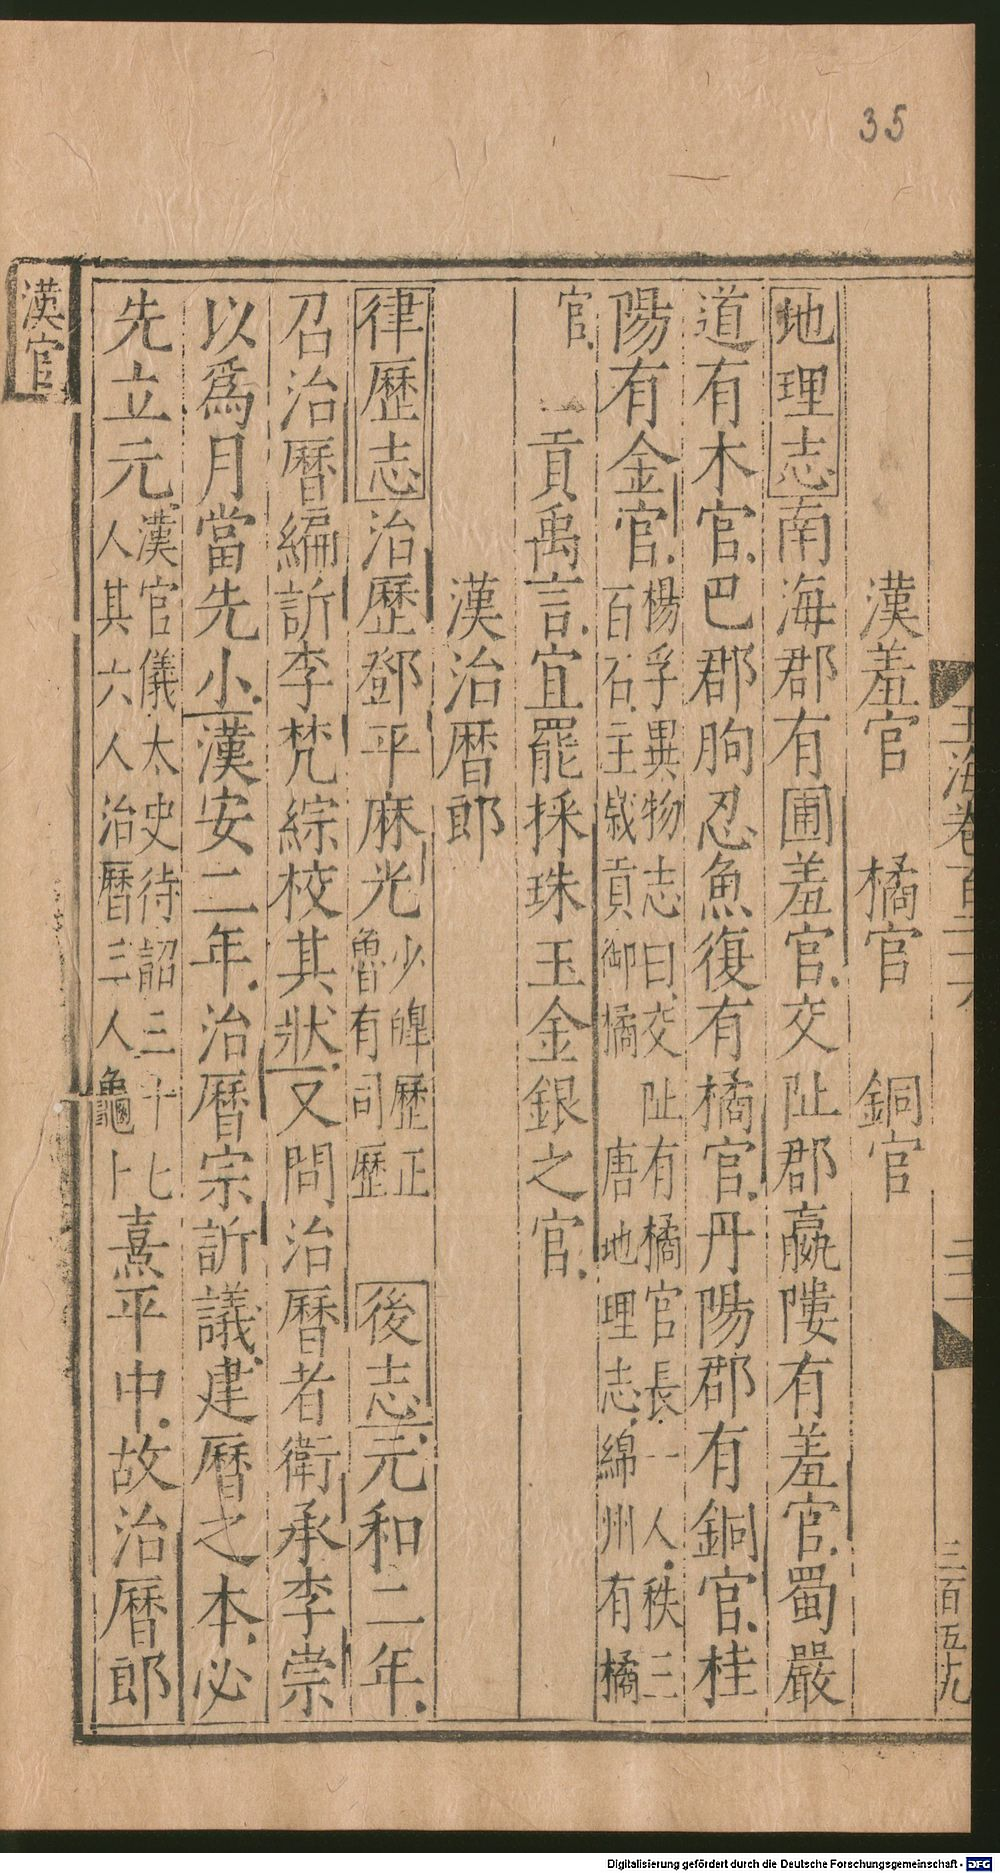 35
玉海卷百二十六
二二
三百五九
漢羞官 橘官 銅官
地理志南海郡有圃羞官交阯郡羸𨻻有羞官蜀嚴
道有木官巴郡朐忍魚復有橘官丹陽郡有銅官桂
陽有金官楊孚異物志曰交阯有橘官長一人秩三百石主歲貢御橘 唐地理志綿州有橘
官 貢禹言宜罷採珠玉金銀之官
漢治曆郎
律歷志治歷鄧平麻光少皞歷正魯有司歷 後志元和二年
召治曆編訢李梵綜校其狀又問治曆者衛承李崇
以爲月當先小漢安二年治曆宗訢議建曆之本必
先立元漢官儀太史待詔三十七人其六人治曆三人龜卜熹平中故治曆郎
漢官
Digitalisierung gefördert durch die Deutsche Forschungsgemeinschaft - DFG